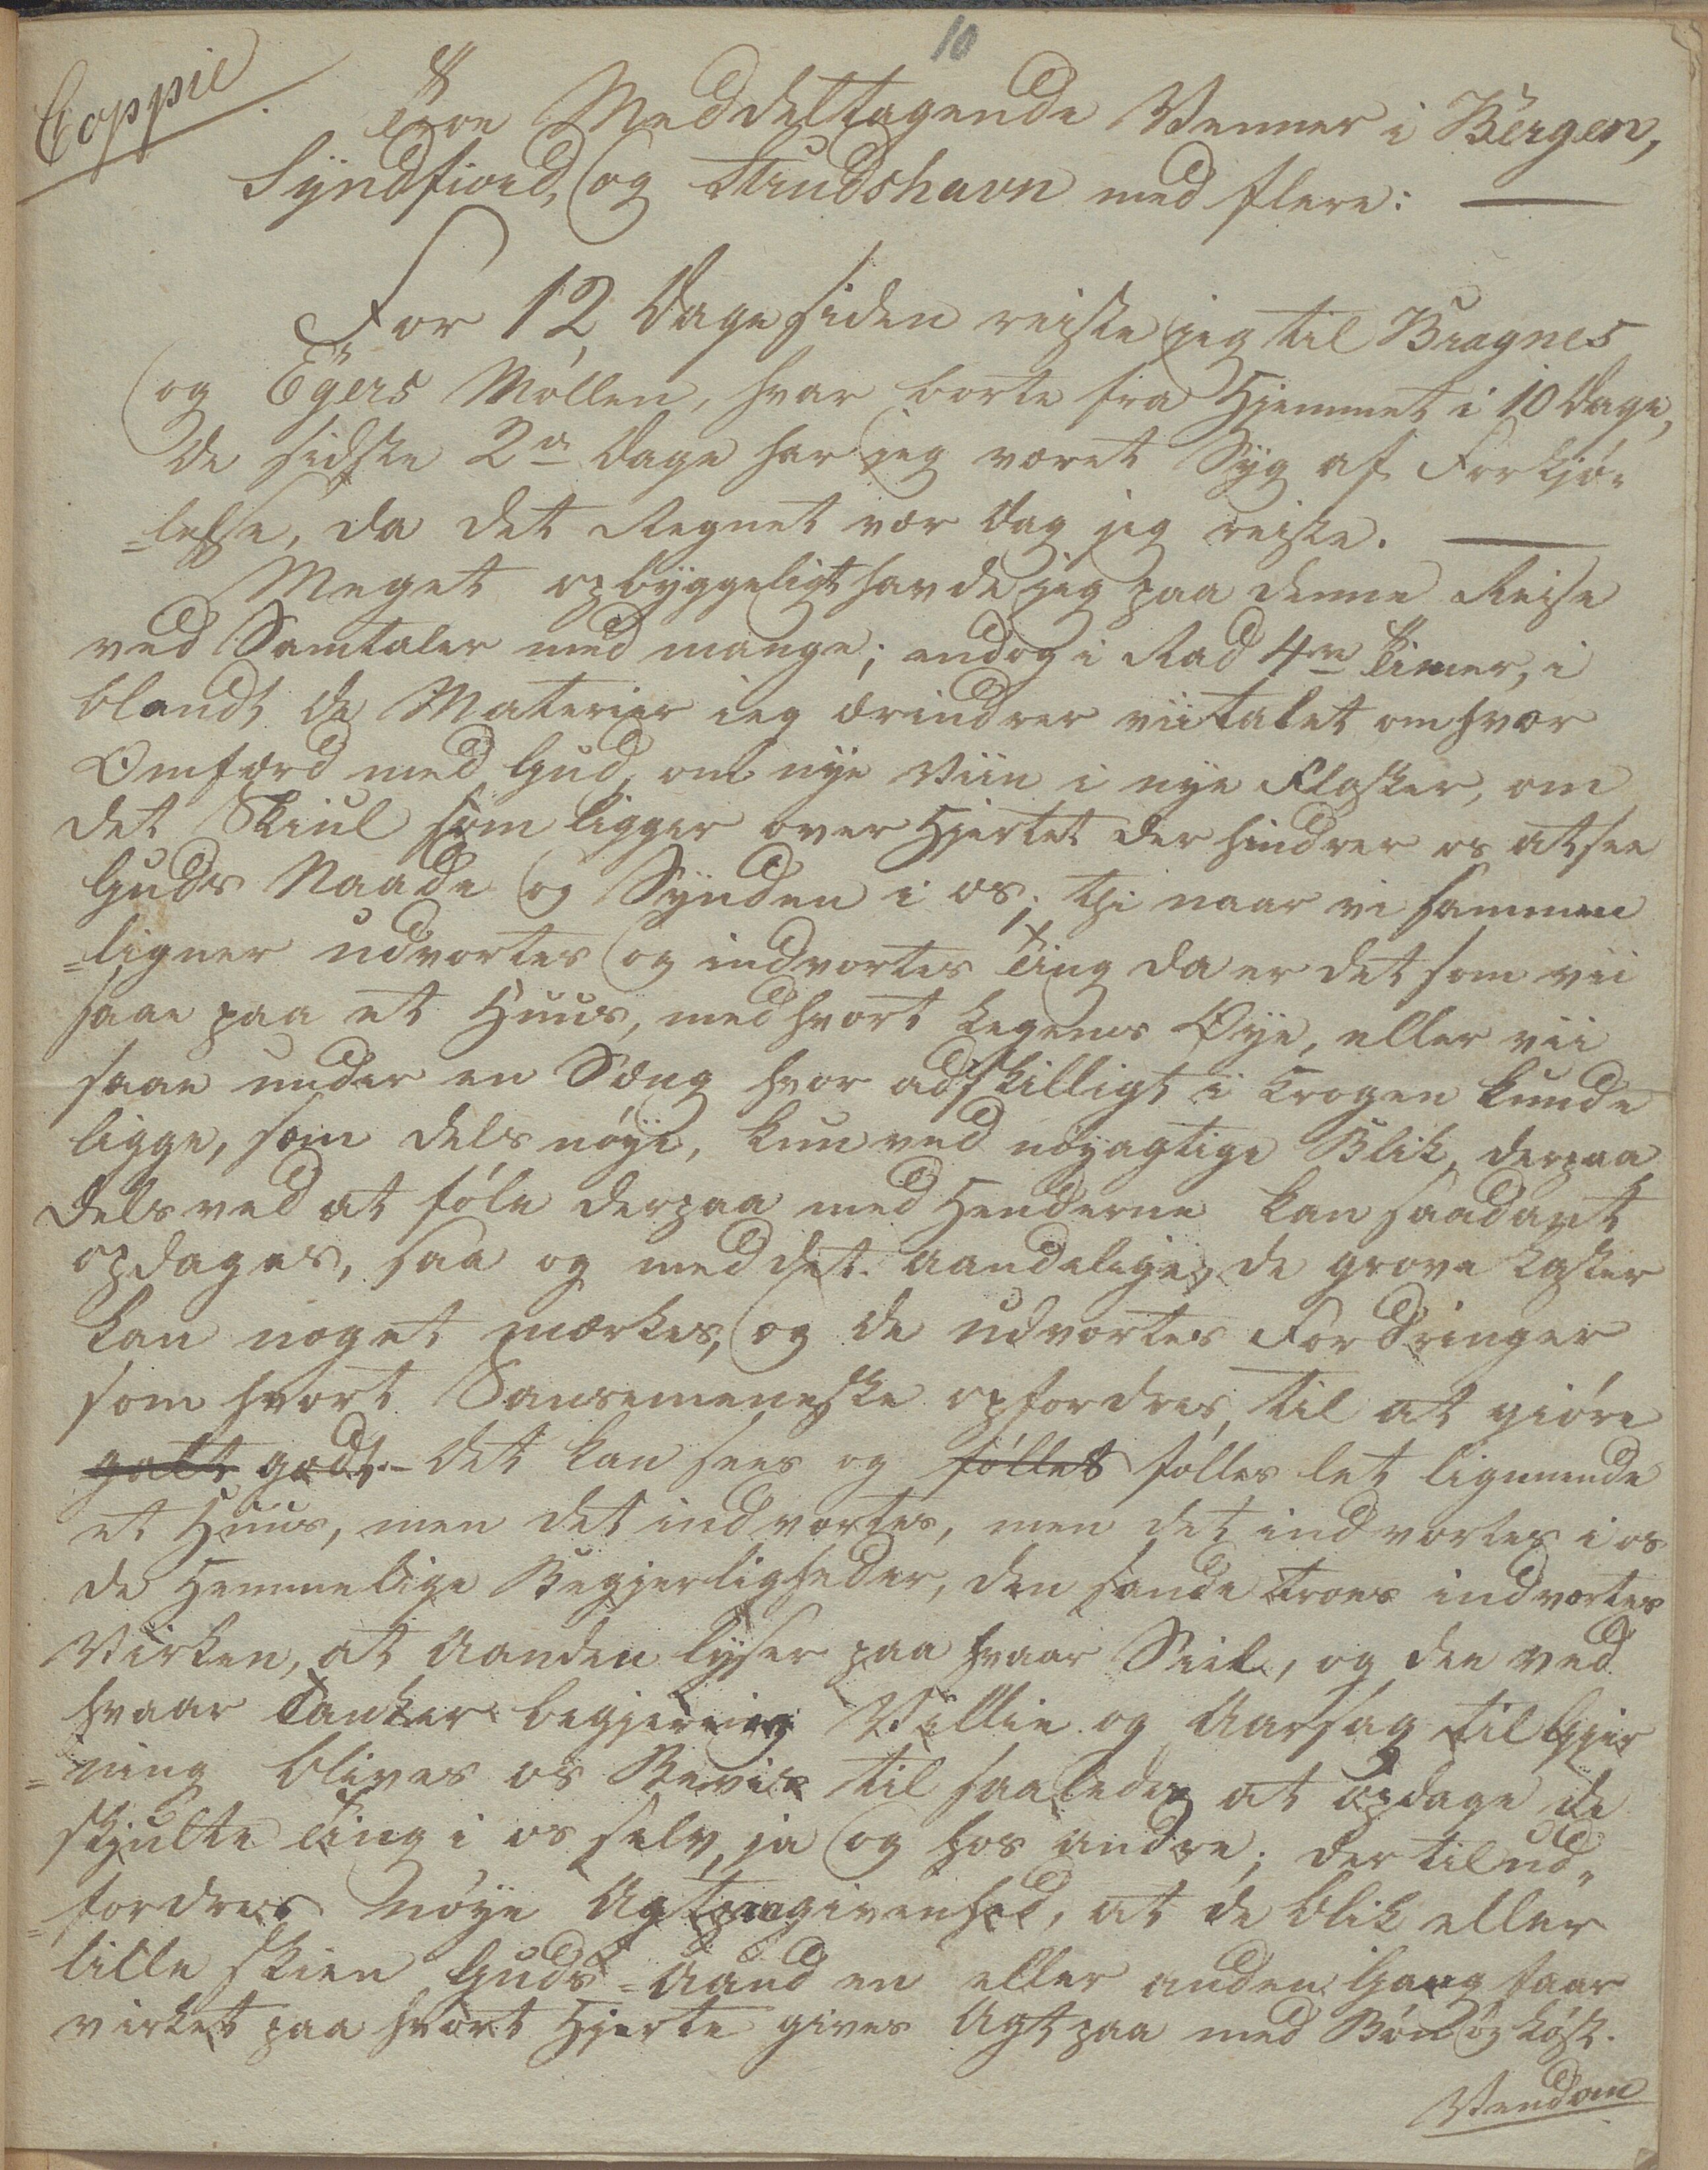 10
Coppie
Troe Meddeltagende Venner i Bergen,
Syndfiord, og Strudshavn med flere: —
For 12 Dage siden reiste jeg til Bragnes
og Egers Møllen, hvar borte fra Hjemmet i 10 Dage,
de sidste 2de Dage har jeg været Syg af Forkjø-
=lesse, da det Regnet vær dag jeg reiste. —
Meget opbyggeligt havde jeg paa denne Reise
ved Samtaler med mange; endog i Rad 4re Timer, i
blandt de Materier ieg ærindrer vii talet om hvor
Omfærd med Gud, om nye Viin i nye Flasker, om
det Skiul som ligger over Hjertet der hindrer os at see
Guds Naade og Synden i os; thi naar vi sammen
=ligner udvortes og indvortes Ting da er det som vii
saae paa et Huus, med hvort Legems Øye, eller vii
saae under en Sæng hvor adskilligt i Krogen kunde
ligge, som dels nøye, kun ved nøyagtige Blik, derpaa
dels ved at føle derpaa med Henderne kan saadant
opdages, saa og med det aandelige, de grove Laster
kan noget mærkes, og de udvortes Fordringer
som hvort Sansemeneske opfordres, til at giøre
galt godt.- det kan sees og føllet følles let lignende
et Huus, men det indvortes, men det indvortes i os
de Hemmelige Begjerligheder, den sande Troes indvortes
Virken, at Aanden lyser paa hvaar Siel, og den ved
hvaar Tanker begjering Villie og Aarsag til Gjer
=ning blives os Bevis til saaledes at opdage de
skjulte Ting i os selv, ja og hos andre; der til ud-
=fordres nøye Agtpaagivenhed, at de blik eller
lille skien Guds-Aand en eller anden Gang faar
virket paa hvort Hjerte gives Agt paa med Bøn og Løst.
Vend om